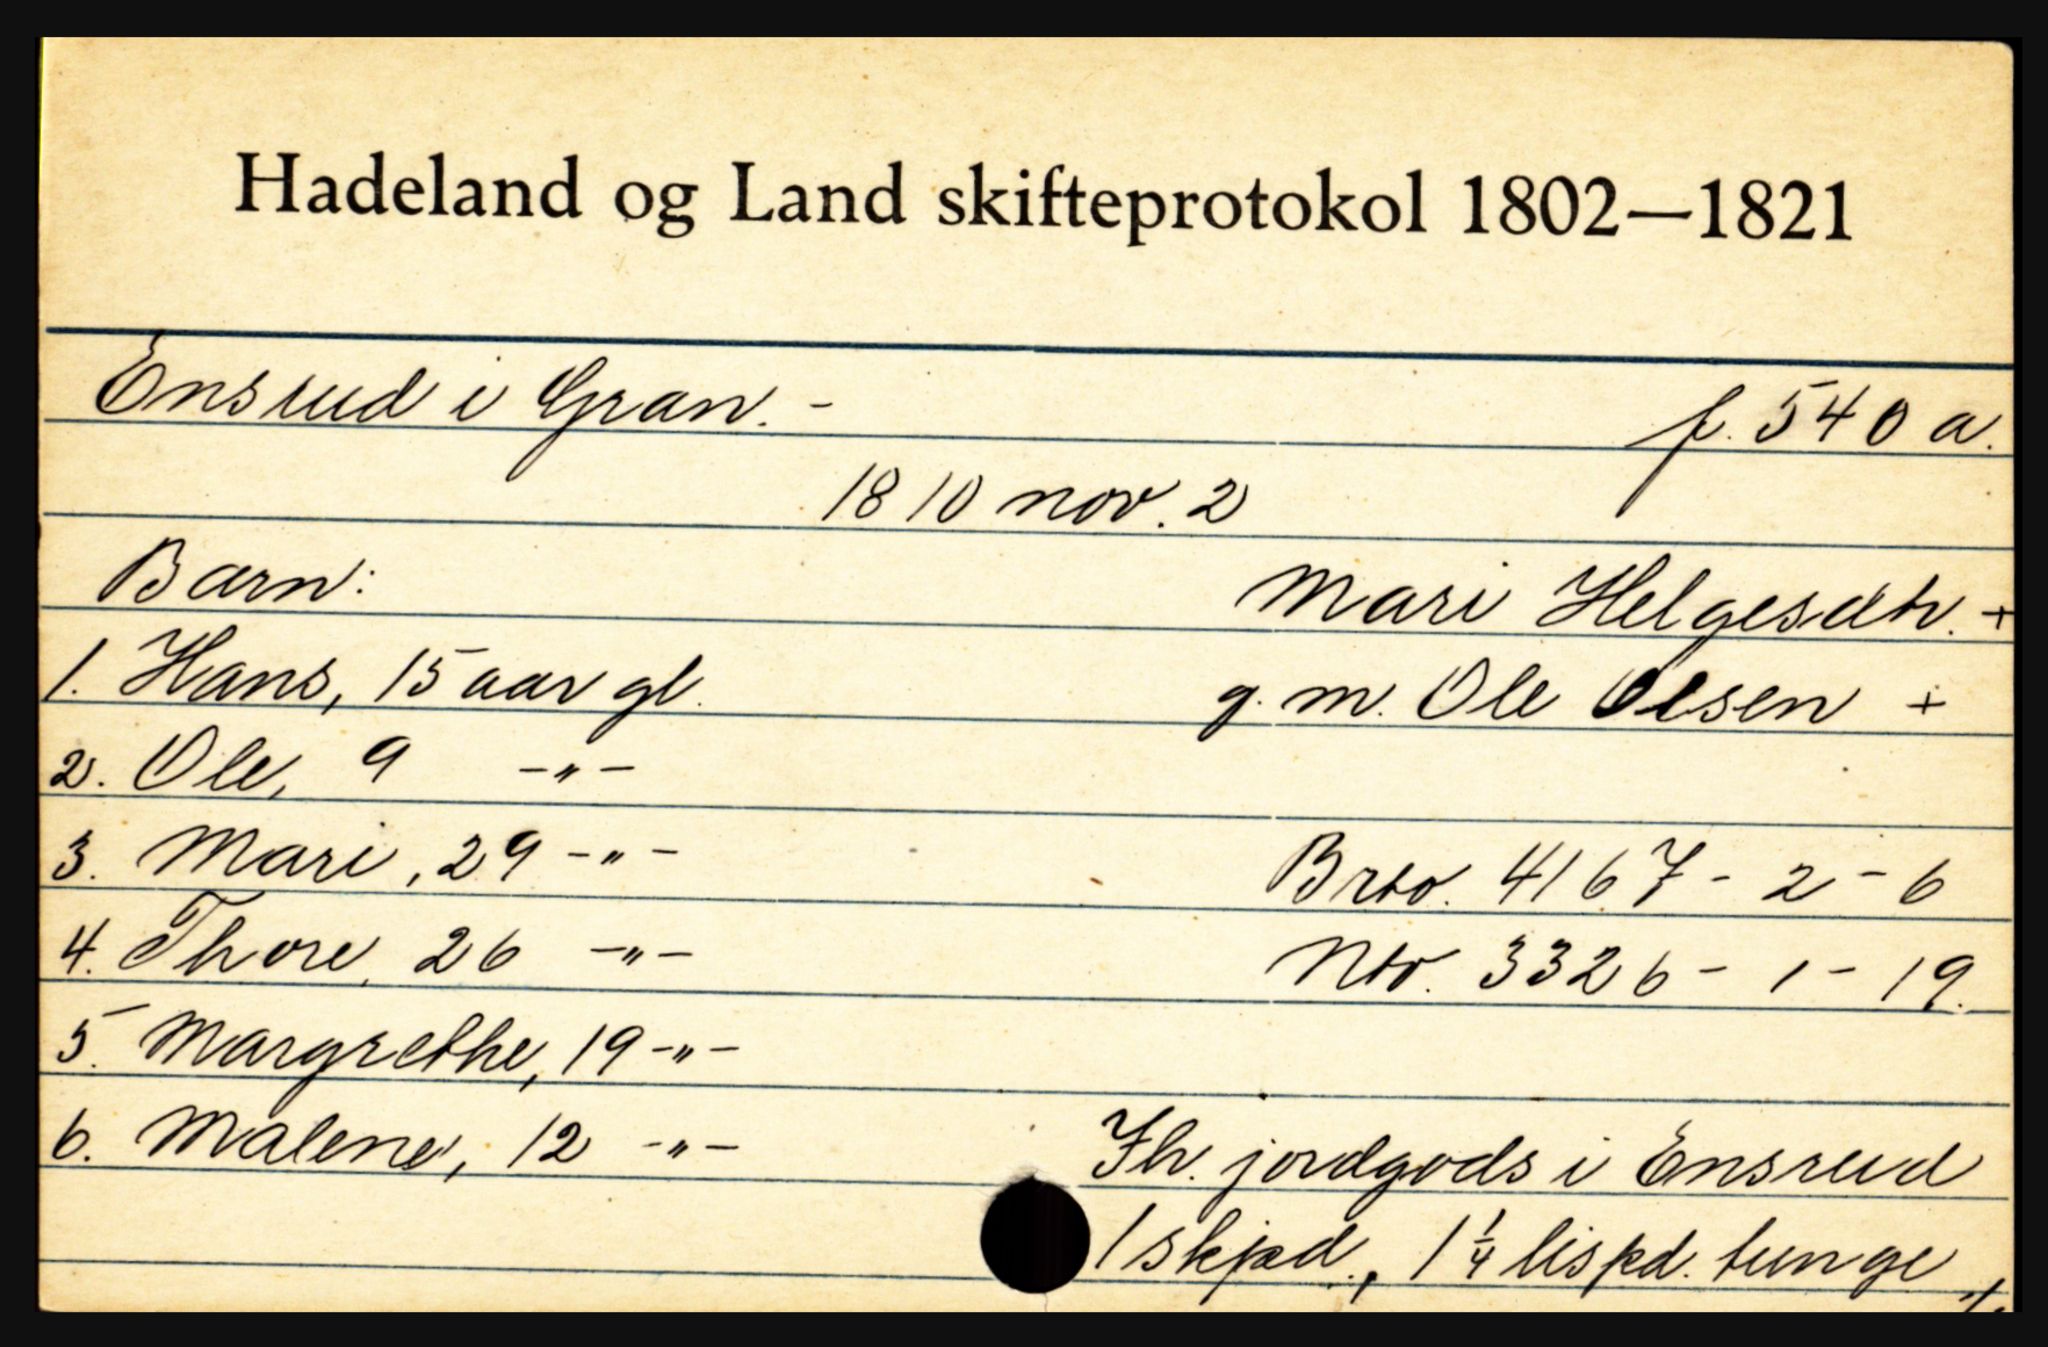 Hadeland og Land skifteprotokol 1802—1821
Ensrud i Gran. - f. 540 a.
1810 nov. 2
Barn: Mari Helgesdtr. +
1. Hans, 15 aar gl. g. m. Ole Olsen +
2. Ole, 9 -"-
3. Mari, 29 -"- Brto. 4167 - 2 - 6
4. Thore, 26 -"- Nto. 3326 - 1 - 19.
5. Margrethe, 19 -"-
6. Malene, 12 -"- Ih. jordgods i Ensrud
1 skpd., 1 1/4 lispd. tunge